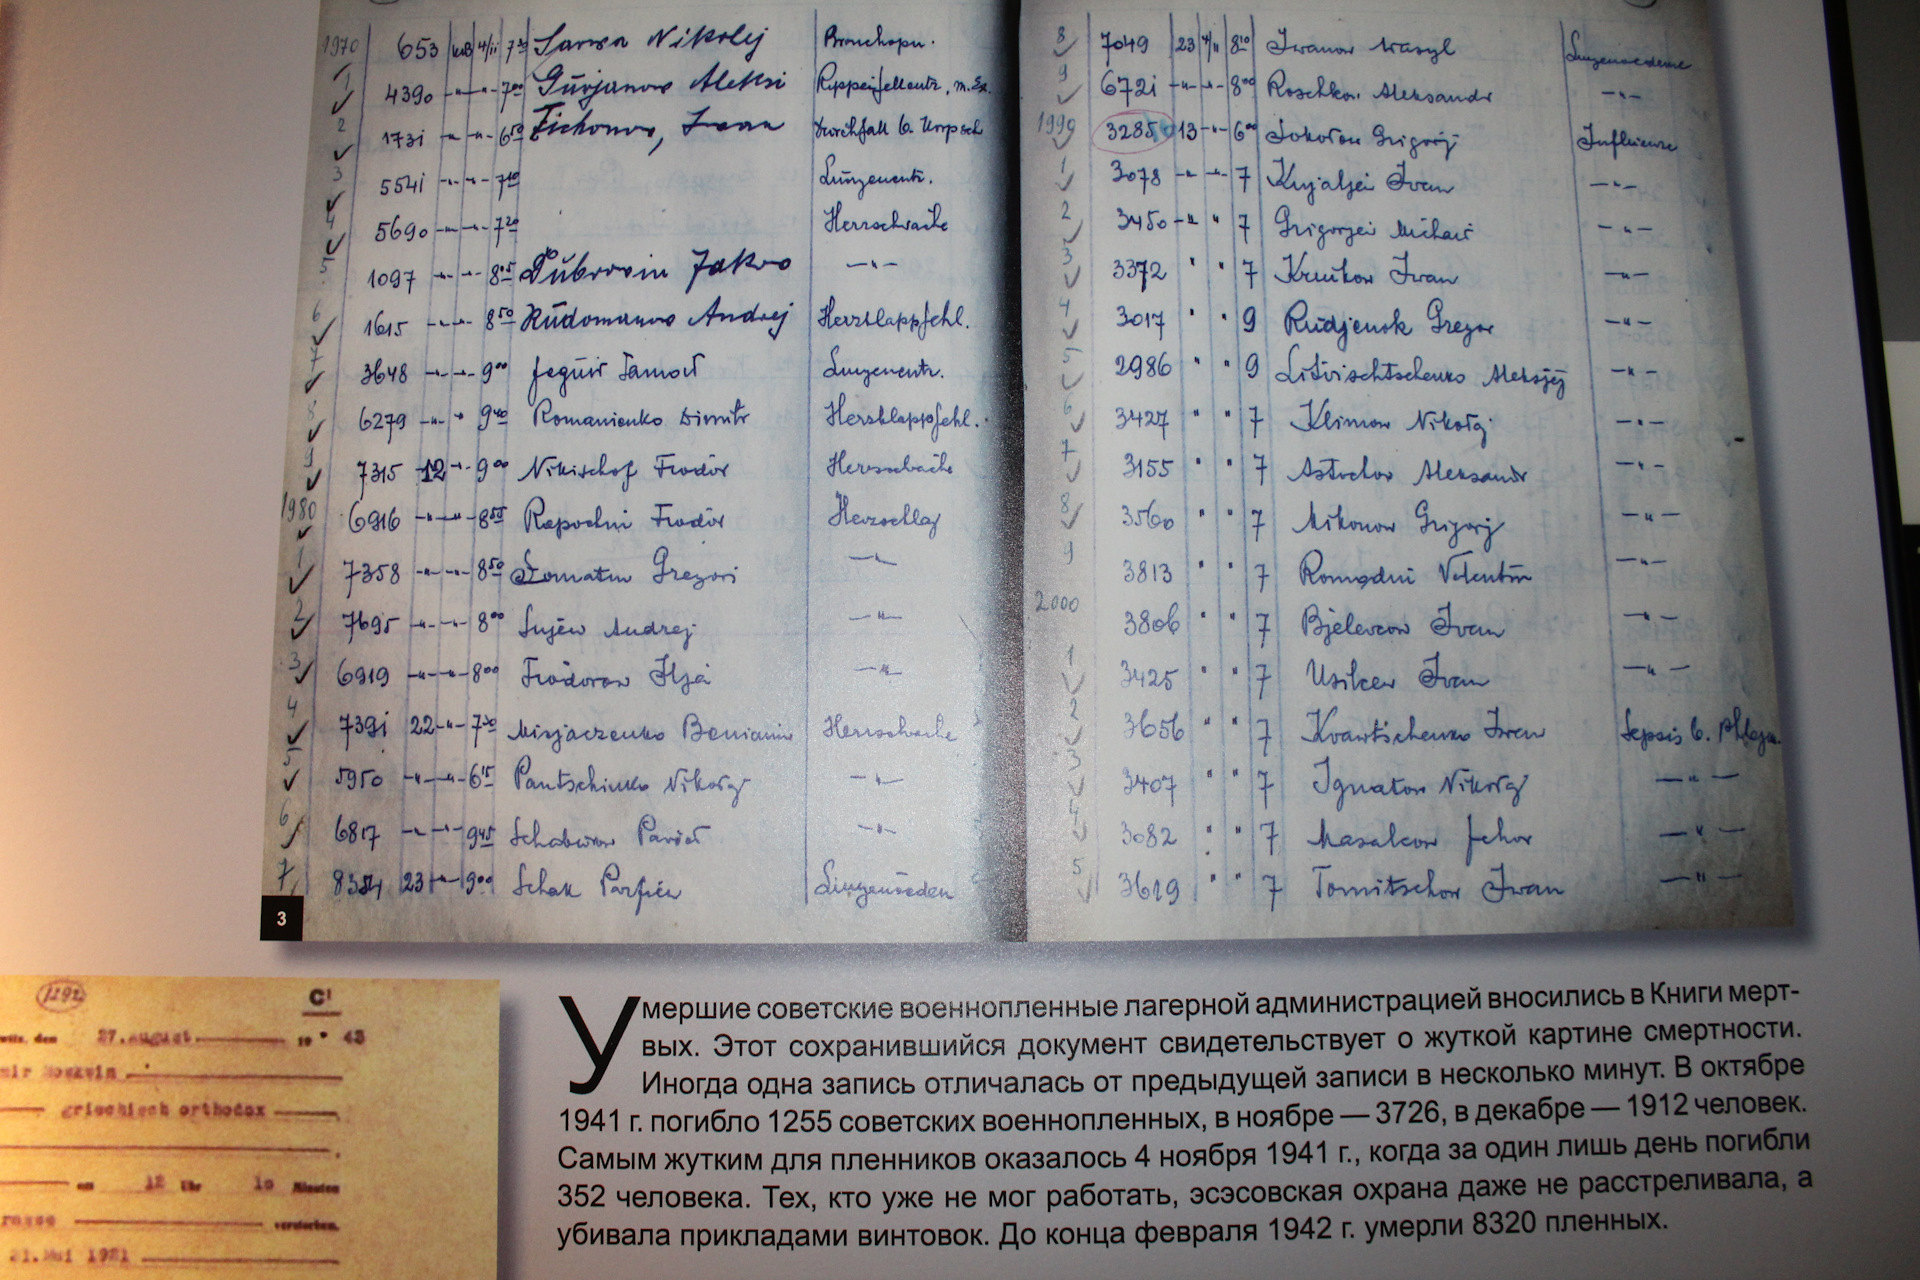 1970 653 4/11 Nikolej Bronchopn.
1 4390 -"- -"- 7⁰⁰ Gurjanow Aleksi Rippenfellentz. m. Ex.
2 173i -"- -"- 6⁵⁰ Tichonow, Iwan Durchfall b.
3 554i -"- -"- 7¹⁰ Lungenentz.
4 5690 -"- -"- 7²⁰ Herzschwäche
5 1097 -"- -"- Dubrowin Jakow -"-
6 1615 -"- -"- 8⁵⁰ Rudomanow Andrej Herzklappfehl.
7 3648 -"- -"- 9⁰⁰ Lungenentz.
8 6279 -"- -"- 9⁴⁰ Romanienko Dimitr Herzklappfehl.
9 7315 12 -"- 9⁰⁰ Nikischof Fiodor Herzschwäche
1980 6916 -"- -"- 8⁵⁵ Fiodor Herzschlag
1 7358 -"- -"- 8⁵⁰ Gregori -"-
2 7695 -"- -"- 8⁰⁰ Andrej -"-
3 6919 -"- -"- 8⁰⁰ Fiodorow Ilja -"-
4 739i 22 -"- Beniamin Herzschwäche
5 5950 -"- -"- 6¹⁵ Pantschenko Nikołaj -"-
6 6817 -"- -"- 9⁴⁵ Paweł -"-
7 23 -"- 9⁰⁰ Schak Parfien Lungenoeden
8 7049 23 4/11 8¹⁰ Iwanow Wasyl Lungenoedeme
9 672i -"- -"- 8⁰⁰ Roschkow Aleksandr -"-
1990 3285 13 -"- 6⁰⁰ Sokołow Grigorij Influenza
1 3078 -"- -"- 7 Iwan -"-
2 3450 -"- " 7 Grigorjew Michaił -"-
3 3372 " " 7 Iwan -"-
4 3017 " " 9 Rudjenok Gregor -"-
5 2986 " " 9 Litvischtschenko Aleksjej -"-
6 3427 " " 7 Klimow Nikołaj -"-
7 3155 " " 7 Aleksandr -"-
8 3560 " " 7 Nikonow Grigorij -"-
9 3813 " " 7 Valentin -"-
2000 3806 " " 7 Bjelevcow Ivan -"-
1 3425 " " 7 Usikow Ivan -"-
2 3656 " " 7 Kvartschenko Iwan Sepsis b. Phlegm.
3 3407 " " 7 Ignatow Nikołaj -"-
4 3082 " " 7 Masalcow -"-
5 3619 " " 7 Tomitschow Iwan -"-
3
1292 C¹
den 27.august 19 43
griechisch orthodox
am 12 Uhr 10 Minuten
verstorben.
21.Mai 1921
Умершие советские военнопленные лагерной администрацией вносились в Книги мерт-
вых. Этот сохранившийся документ свидетельствует о жуткой картине смертности.
Иногда одна запись отличалась от предыдущей записи в несколько минут. В октябре
1941 г. погибло 1255 советских военнопленных, в ноябре — 3726, в декабре — 1912 человек.
Самым жутким для пленников оказалось 4 ноября 1941 г., когда за один лишь день погибли
352 человека. Тех, кто уже не мог работать, эсэсовская охрана даже не расстреливала, а
убивала прикладами винтовок. До конца февраля 1942 г. умерли 8320 пленных.